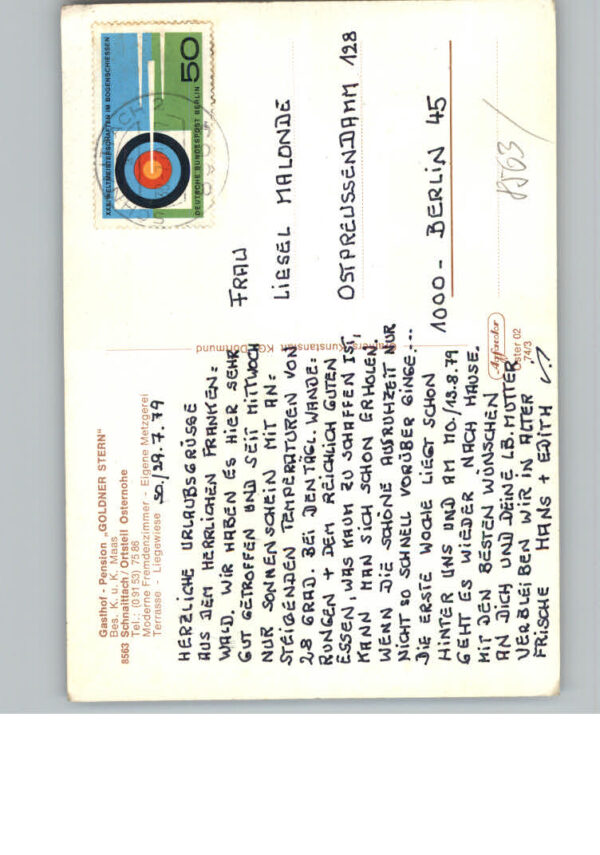 Gasthof - Pension „GOLDNER STERN"
Bes. K. u. K. Maas
8563 Schnaittach / Ortsteil Osternohe
Tel.: (0 91 53) 75 86
Moderne Fremdenzimmer - Eigene Metzgerei
Terrasse - Liegewiese
SO./29.7.79
HERZLICHE URLAUBSGRÜSSE
AUS DEM HERRLICHEN FRANKEN=
WALD. WIR HABEN ES HIER SEHR
GUT GETROFFEN UND SEIT MITTWOCH
NUR SONNENSCHEIN MIT AN=
STEIGENDEN TEMPERATUREN VON
28 GRAD. BEI DEN TÄGL. WANDE=
RUNGEN + DEM REICHLICH GUTEN
ESSEN, WAS KAUM ZU SCHAFFEN IST,
KANN MAN SICH SCHON ERHOLEN.
WENN DIE SCHÖNE AUSRUHZEIT NUR
NICHT SO SCHNELL VORÜBER GINGE...
DIE ERSTE WOCHE LIEGT SCHON
HINTER UNS UND AM MO./13.8.79
GEHT ES WIEDER NACH HAUSE.
MIT DEN BESTEN WÜNSCHEN
AN DICH UND DEINE LB. MUTTER
VERBLEIBEN WIR IN ALTER
FRISCHE HANS + EDITH
Kunstanstalt KG, Dortmund
XXX. WELTMEISTERSCHAFTEN IM BOGENSCHIESSEN
50
DEUTSCHE BUNDESPOST BERLIN
FRAU
LIESEL MALONDE
OSTPREUSSENDAMM 128
1000 - BERLIN 45
8563
Oster 02
74/3